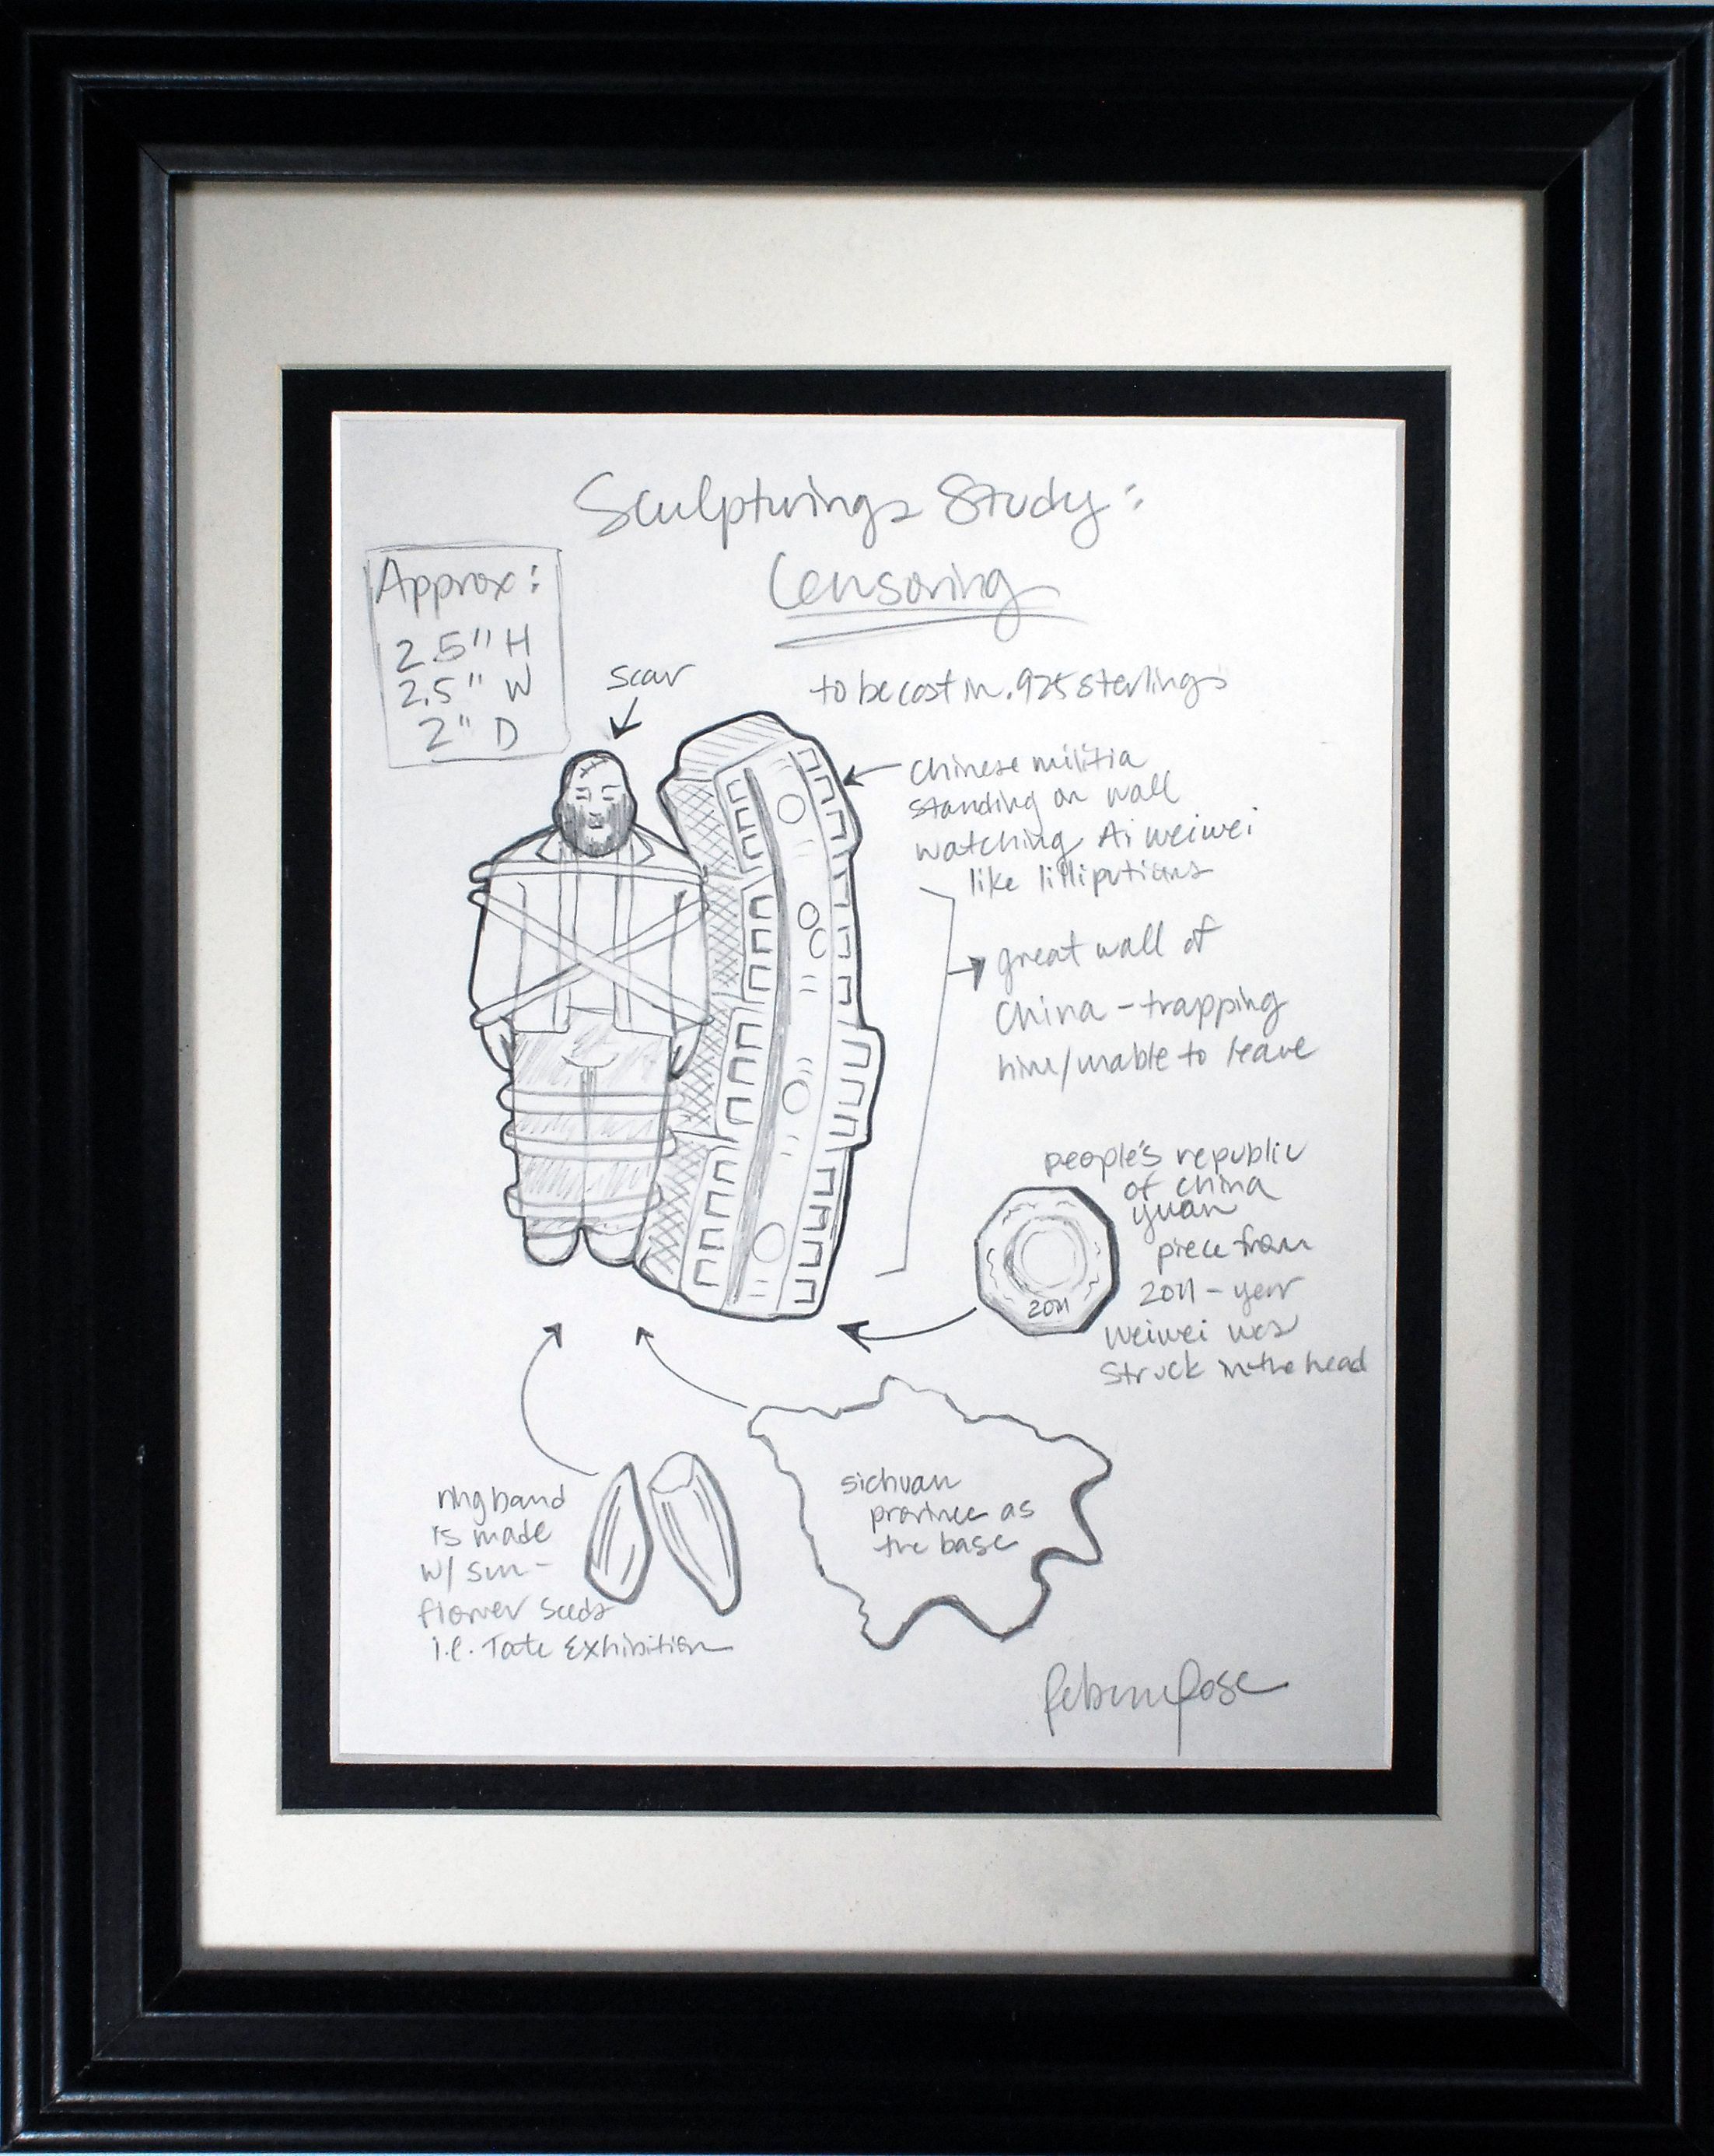 Sculpturings Study:
Censoring
Approx:
2.5" H
2.5" W
2" D
scar
to be cast in .925 sterlings
chinese militia
standing on wall
watching Ai weiwei
like lilliputians
great wall of
China - trapping
him/unable to leave
people's republic
of china
yuan
piece from
2011 - year
weiwei was
struck in the head
2011
ring band
is made
w/ sun-
flower seeds
i.e. Tate Exhibition
sichuan
province as
the base